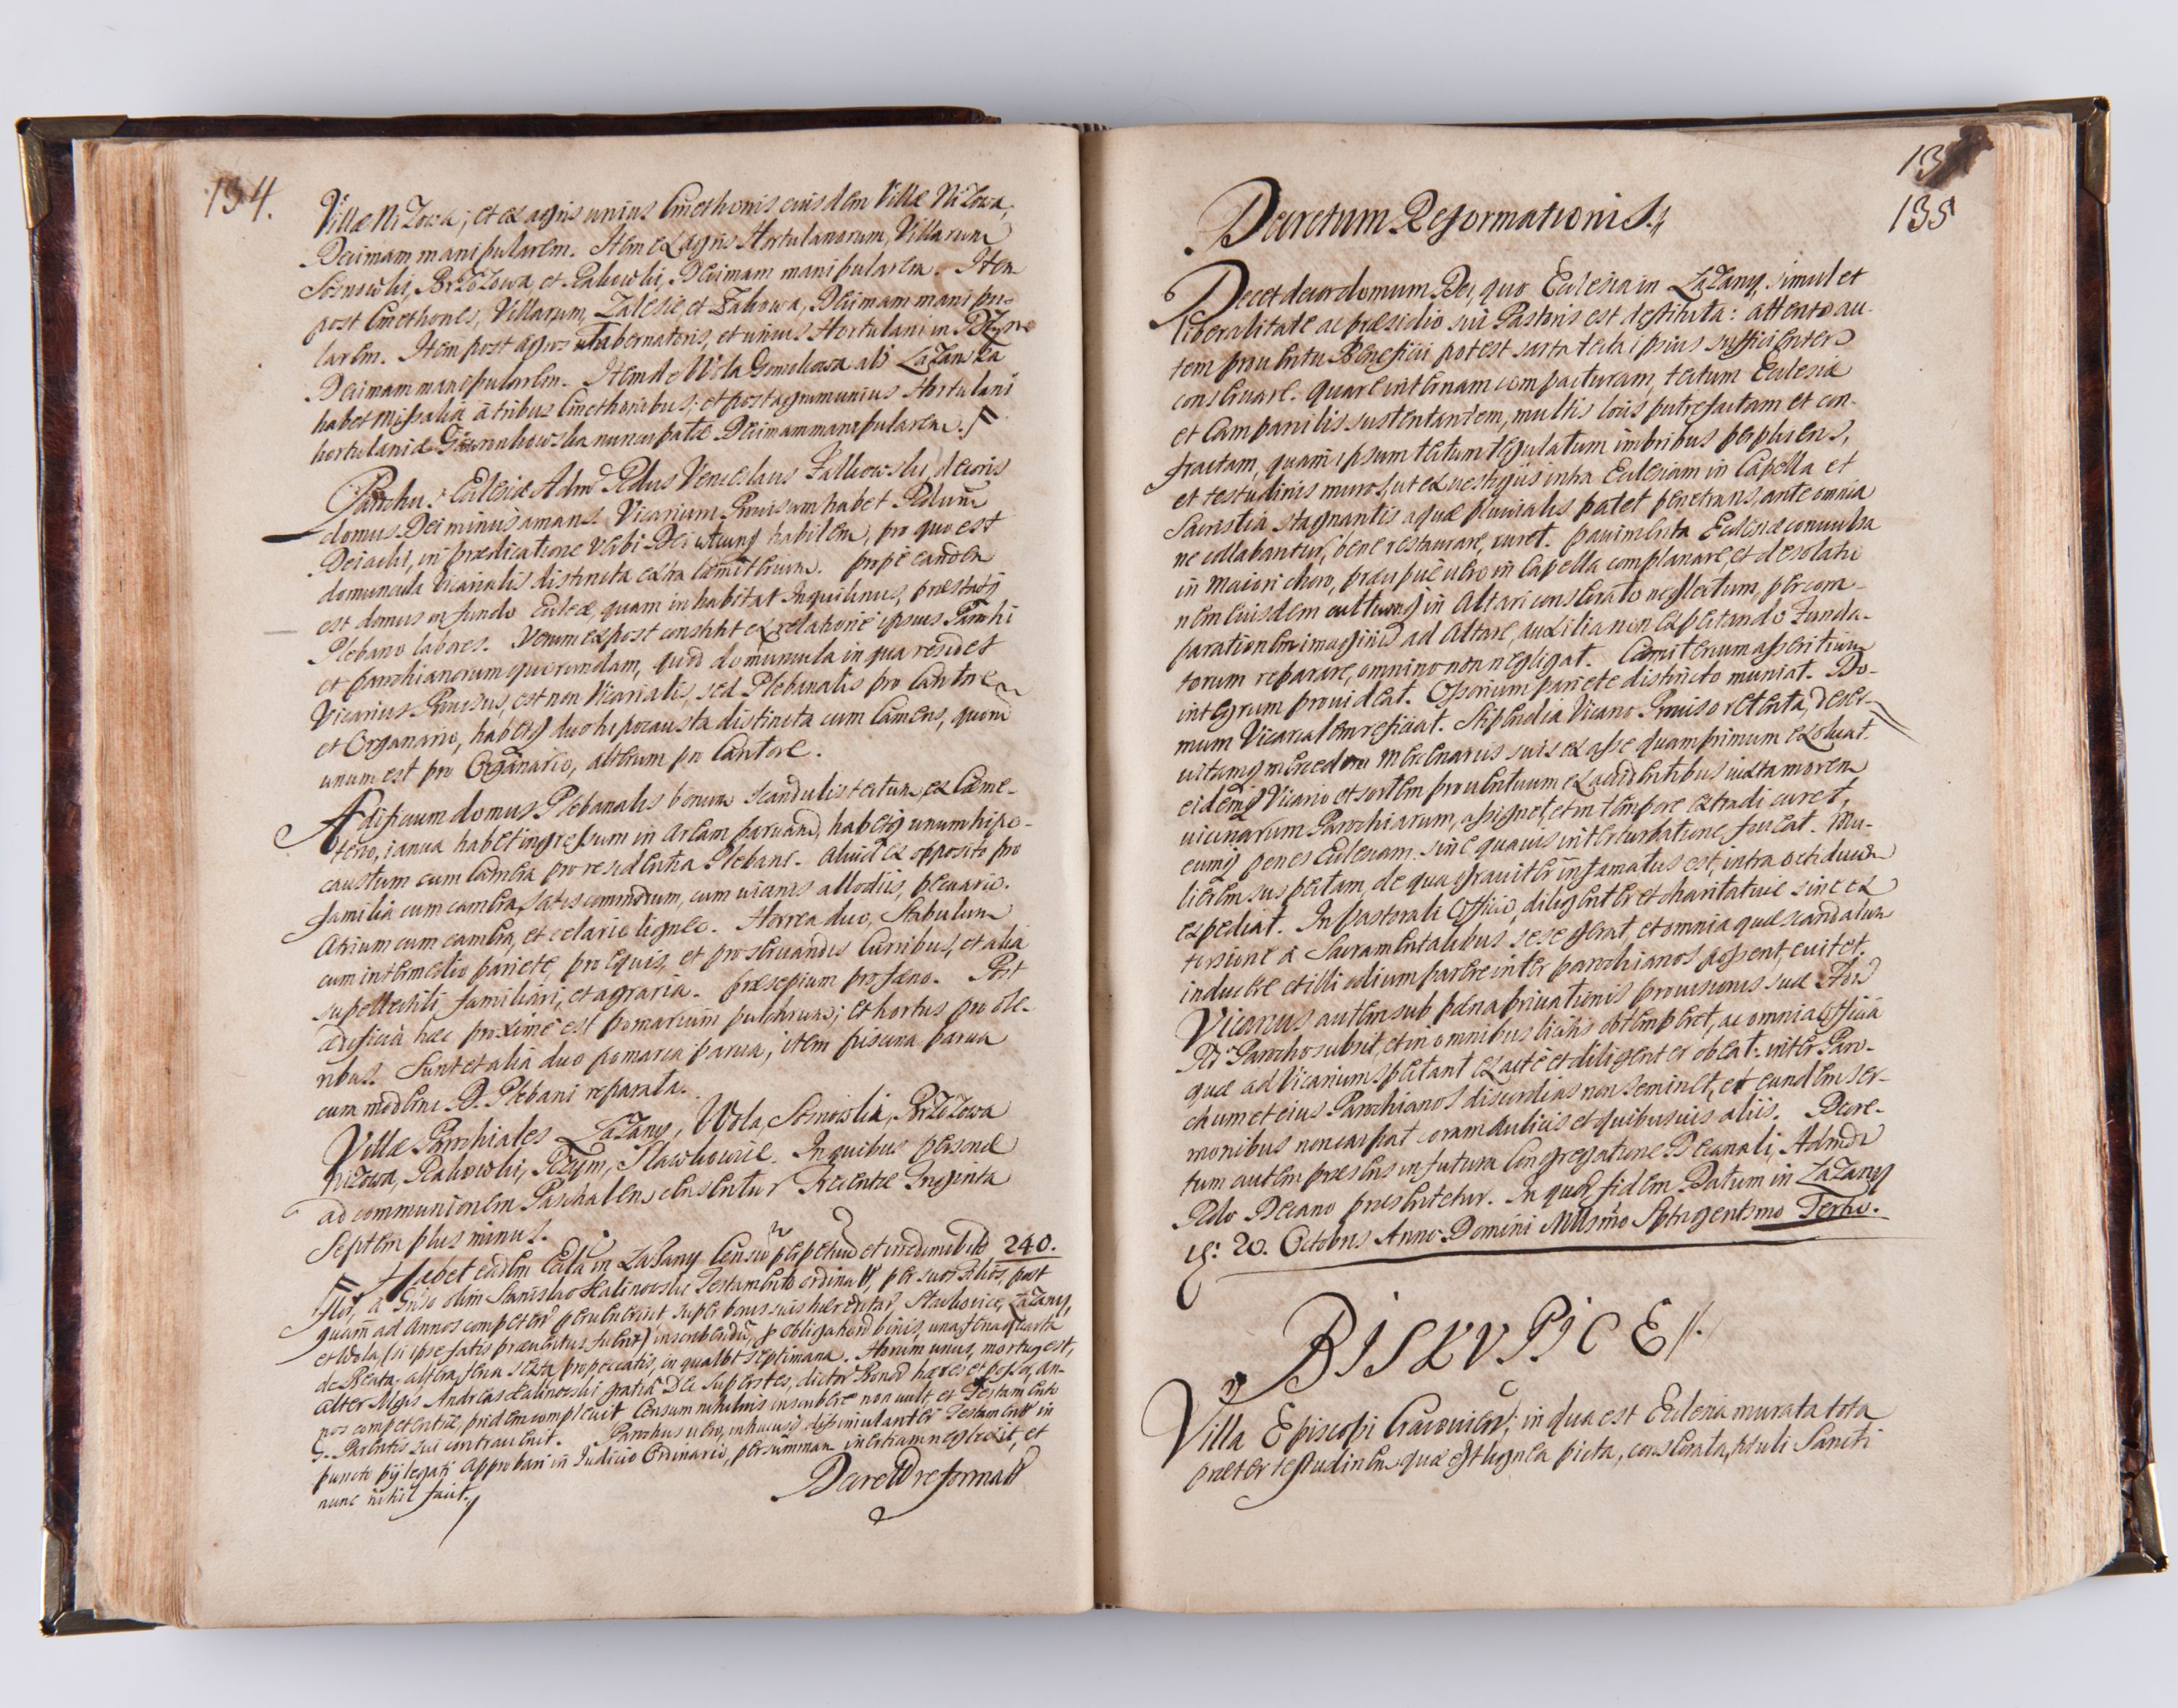 134.
Villæ Niżowa; et ex agris unius Cmethonis eiusdem Villæ Niżowa,
Decimam manipularem. Item ex agris Hortulanorum, Villarum
Sosnowka, Brzozowa, et Rakowki, Decimam manipularem. Item
post Cmethones, Villarum, Zalesie, et Żakowa, Decimam manipu-
larem. Item post agros Tabernatoris, et unius Hortulani in
Decimam manipularem. Item de Wola al's
habet Missalia à tribus Cmethonibus; et post agrum unius Hortulani
hortulaniæ nuncupatæ Decimam manipularem.
Parochus Ecclesiæ Adm. Rdus Venceslaus decoris
domus Dei minus amans. Vicarium Provisum habet Rdum
in prædicatione Verbi Dei utcunq habilem, pro quo est
domuncula Vicarialis distincta extra Cæmiterium. prope eandem
est domus in fundo Eccl'æ, quam inhabitat Inquilinus, præstatq
Plebano labores. Verum ex post constitit ex relatione ipsius Parochi
et parochianorum quorundam, quod domuncula in qua residet
Vicarius Provisus, est non Vicarialis, sed Plebanalis pro Cantore
et Organario, habetq duo hipocausta distincta cum Cameris, quorum
unum est pro Organario, alterum pro Cantore.
Ædificium domus Plebanalis bonum scandulis tectum, ex Cæme-
terio, ianua habet ingressum in aream parvam, habetq unum hipo-
caustum cum Camera pro residentia Plebani. aliud ex opposito pro
familia cum camera, satis commodum, cum vicinis allodiis, pecuario.
Atrium cum camera, et celario ligneo. Horrea duo, Stabulum
cum intermedio pariete, pro equis, et pro servandis Curribus, et alia
supellectili familiari, et agraria. præsepium pro fæno. Post
ædificia hæc proxime est pomarium pulchrum; et hortus pro ole-
ribus. Sunt et alia duo pomaria parva, item piscina parva
cura moderni D. Plebani reparata.
Villæ Parochiales Łazany, Wola, Sosnowka, Brzozowa
Niżowa, Rakowki, Sławkowice. In quibus personæ
ad communionem Paschalem censentur trecentæ triginta
Septem plus minus.
Habet eadem Eccl'a in Łazany Censum perpetuum et irredimibilem 240.
flor, à Gnso olim Stanislao Kalinowski Testamento ordinatum, per suos filios, post
quam ad Annos competentes pervenerint super bonis suis hæreditariis, Sławkowice, Łazany,
et Wola, (si ipse fatis præventus fuerit) inscribendum, obligatione binis, una feria quarta
de Beata, altera feria sexta pro peccatis, in qualibet septimana. Horum unus, mortuus est,
alter Mgcs Andreas Kalinowski gratia Dei superstes, dictorum Bonorum hæres et possessor, an-
nos competentiæ, pridem complevit Censum nihilominus inscribere non vult, et Testamento
G. Parentis sui contravenit. Parochus vero, in hucusq dissimulanter Testamentum in
puncto pij legati approbari in Judicio Ordinario, per summam inertiam neglexit, et
nunc nihil facit.
Decretum reformatis
13
135
Decretum Reformationis.
Decet decor domum Dei, quo Ecclesia in Łazany, simul et
liberalitate ac præsidio sui Pastoris est destituta: attento au-
tem proventu Beneficii potest sarta tecta ipsius sufficienter
conservare. Quare internam compacturam, tectum Ecclesiæ
et Campanilis sustentantem, multis locis putrefactam et con-
fractam, quam ipsum tectum tegulatum imbribus perpluens,
et testudinis muros, ut ex vestigiis intra Ecclesiam in Capella et
Sacristia stagnantis aquæ pluvialis patet penetrans, ante omnia
ne collabantur, bene restaurare, curet. pavimenta Ecclesiæ convulsa
in maiori choro, præcipue vero in Capella complanare, et desolatio
nem eiusdem cultumq in Altari conserato neglectum, per com-
parationem imaginis ad Altare, auxilia non expectando Funda-
torum reparare, omnino non negligat. Cæmiterium asseritium
integrum provideat. Ossorium pariete distincto muniat. Do-
mum Vicarialem reficiat. Stipendia Vicario Proviso retenta, deser-
vitamq mercedem mercenariis suis ex asse quamprimum exsolvat.
eidemq Vicario et sortem proventuum ex accidentibus iuxta morem
vicinarum Parochiarum, assignet, et in tempore extradi curet,
eumq penes Ecclesiam sine quavis interturbatione foveat. Mu-
lierem suspectam, de qua graviter infamatus est, intra octiduum
expediat. In pastorali Officio, diligenter et charitative sine ex
torsione à Sacramentalibus sese gerat, et omnia quæ scandalum
inducere et illi odium parere inter parochianos possent, evitet.
Vicarius autem sub pæna privationis provisionis suæ
Parocho subsit, et in omnibus licitis obtemperet, ac omnia Officia
quæ ad Vicarium spectant exacte et diligenter obeat: inter Paro-
chum et eius Parochianos discordias non seminet, et eundem ser-
monibus non carpat coram aulicis et quibusvis aliis. Decre-
tum autem præsens in futura Congregatione Decanali, Admodum
Rdo Decano præsentetur. In quorum fidem Datum in Łazany
20. Octobris Anno Domini Millesimo Septingentesimo Tertio.
BISKUPICE
Villa Episcopi Cracovien; in qua est Ecclesia murata tota
præter testudinem quæ est lignea picta, conserata, tituli Sancti